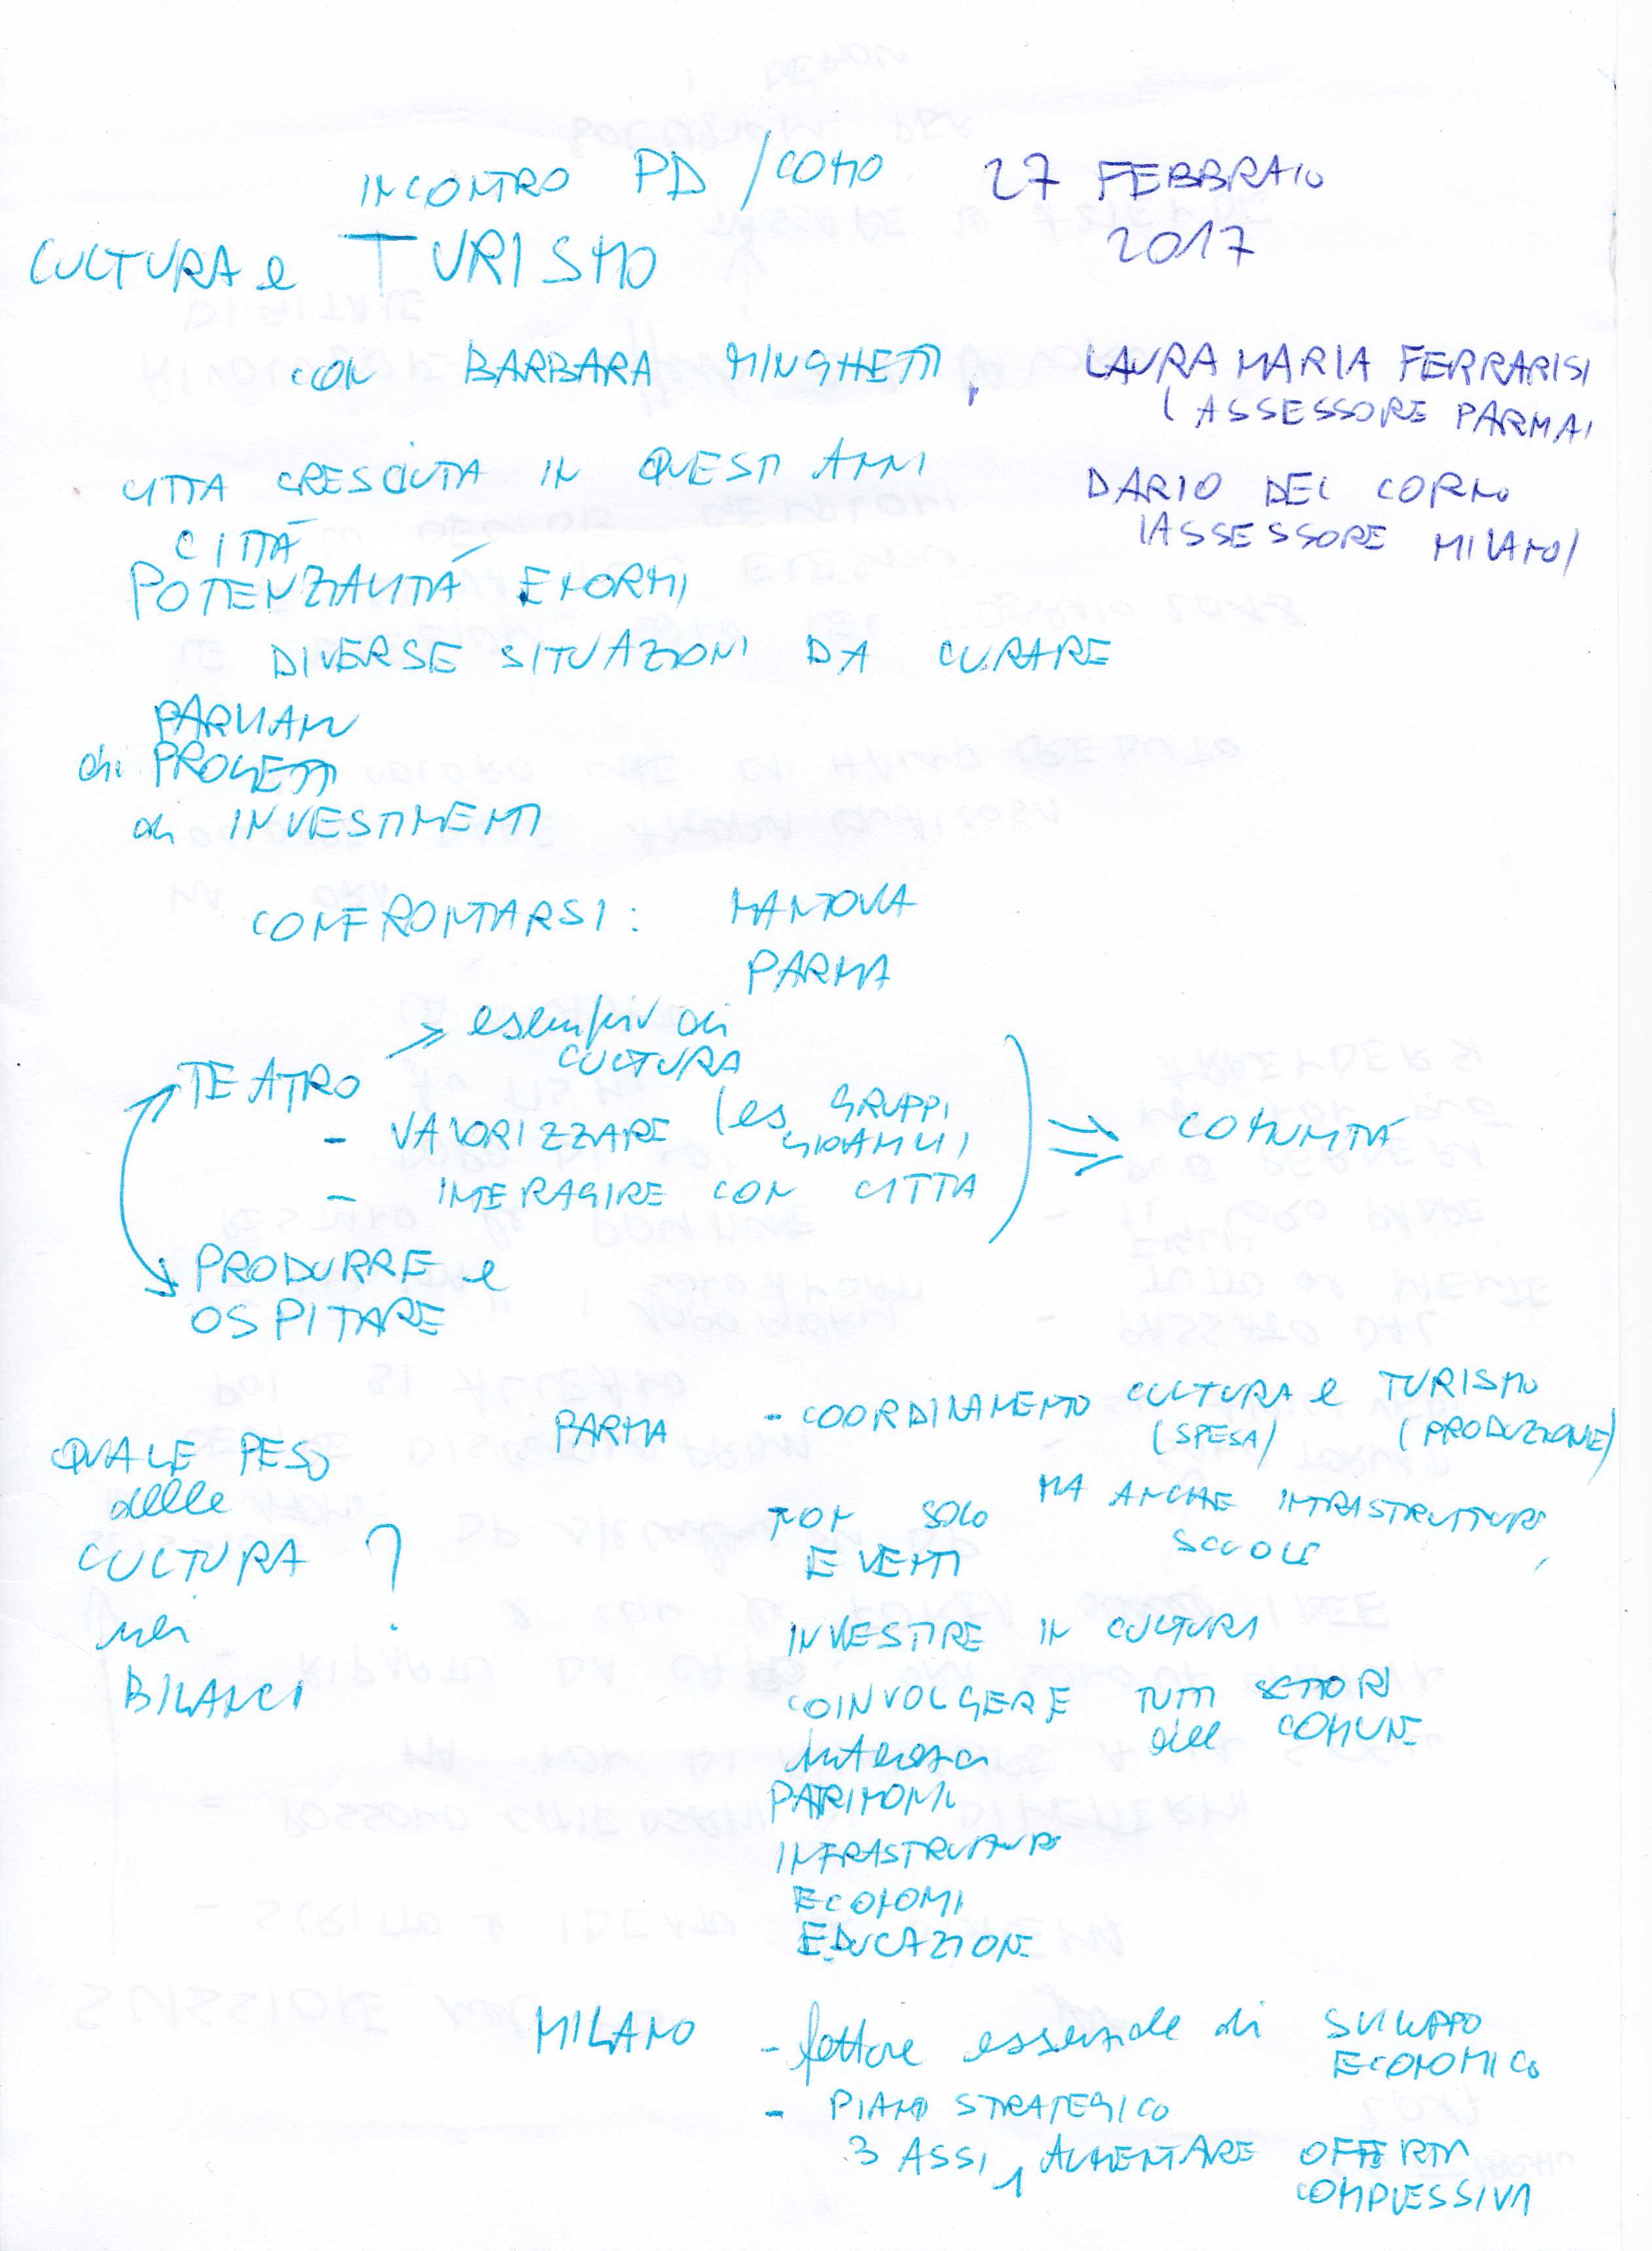 INCONTRO PD / COMO 27 FEBBRAIO
2017
CULTURA e TURISMO
con BARBARA MINGHETTI,
LAURA MARIA FERRARISI
(ASSESSORE PARMA)
CITTA CRESCIUTA IN QUESTI ANNI
DARIO DEL CORNO
(ASSESSORE MILANO)
CITTÀ
POTENZIALITÀ ENORMI
DIVERSE SITUAZIONI DA CURARE
PARLIAMO
di PROGETTI
di INVESTIMENTI
CONFRONTARSI: MANTOVA
PARMA
TEATRO => esempio di
CULTURA
- VALORIZZARE (es GRUPPI
GIOVANILI)
- INTERAGIRE CON CITTA
=> COMUNITÀ
PRODURRE e
OSPITARE
QUALE PESO
delle
CULTURA ?
nei
BILANCI
PARMA - COORDINAMENTO CULTURA e TURISMO
(SPESA) (PRODUZIONE)
NON SOLO MA ANCHE INFRASTRUTTURE,
EVENTI SCUOLE
INVESTIRE IN CULTURA
COINVOLGERE TUTTI SETTORI
dell COMUNE
PATRIMONI
INFRASTRUTTURE
ECONOMI
EDUCAZIONE
MILANO - fattore essenziale di SVILUPPO
ECONOMICO
- PIANO STRATEGICO
3 ASSI, 1 AUMENTARE OFFERTA
COMPLESSIVA